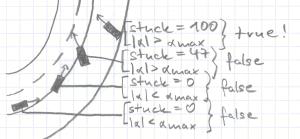 stuck = 100
|α| > αmax
true!
stuck = 47
|α| > αmax
false
stuck = 0
|α| < αmax
false
stuck = 0
|α| < αmax
false